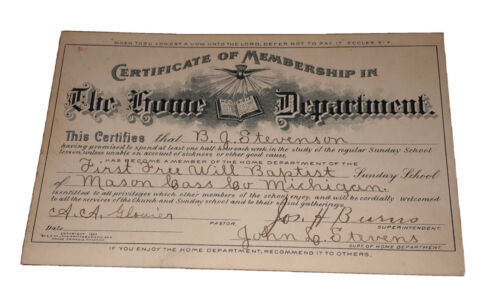 WHEN THOU VOWEST A VOW UNTO THE LORD, DEFER NOT TO PAY IT. ECCLES. 5:4.
CERTIFICATE OF MEMBERSHIP IN
The Home Department.
This Certifies that B. J. Stevenson
having promised to spend at least one half hour each week in the study of the regular Sunday School
lesson, unless unable on account of sickness or other good cause,
HAS BECOME A MEMBER OF THE HOME DEPARTMENT OF THE
First Free Will Baptist Sunday School
of Mason Cass Co Michigan.
is entitled to all privileges which other members of the school enjoy, and will be cordially welcomed
to all the services of the Church and Sunday school and to their social gatherings.
A. A. Glovier
PASTOR.
Jos. H Burns
SUPERINTENDENT.
Date
John L. Stevens
SUPT. OF HOME DEPARTMENT.
IF YOU ENJOY THE HOME DEPARTMENT, RECOMMEND IT TO OTHERS.